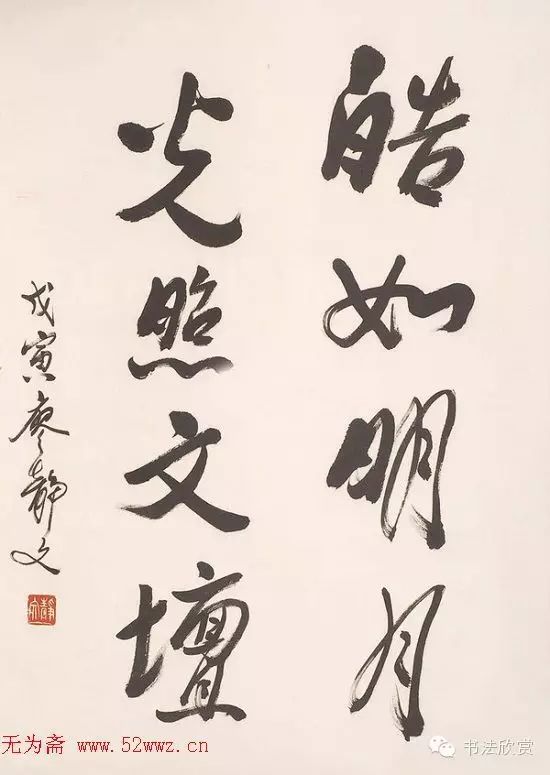 皓如明月
光照文壇
戊寅廖静文
静文
无为斋 www.52wwz.cn
书法欣赏